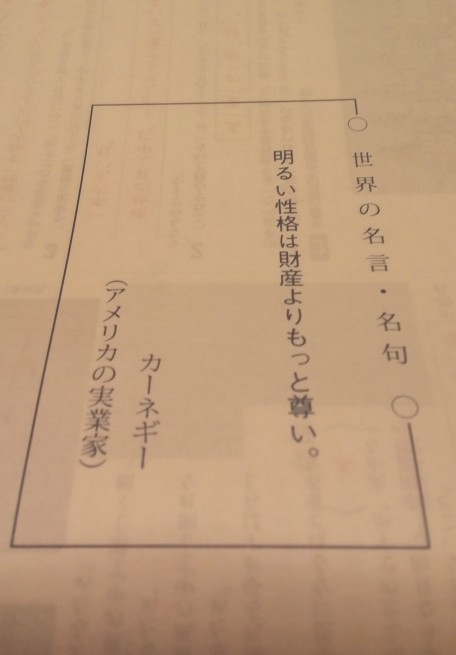 ○世界の名言・名句○
明るい性格は財産よりもっと尊い。
カーネギー
（アメリカの実業家）